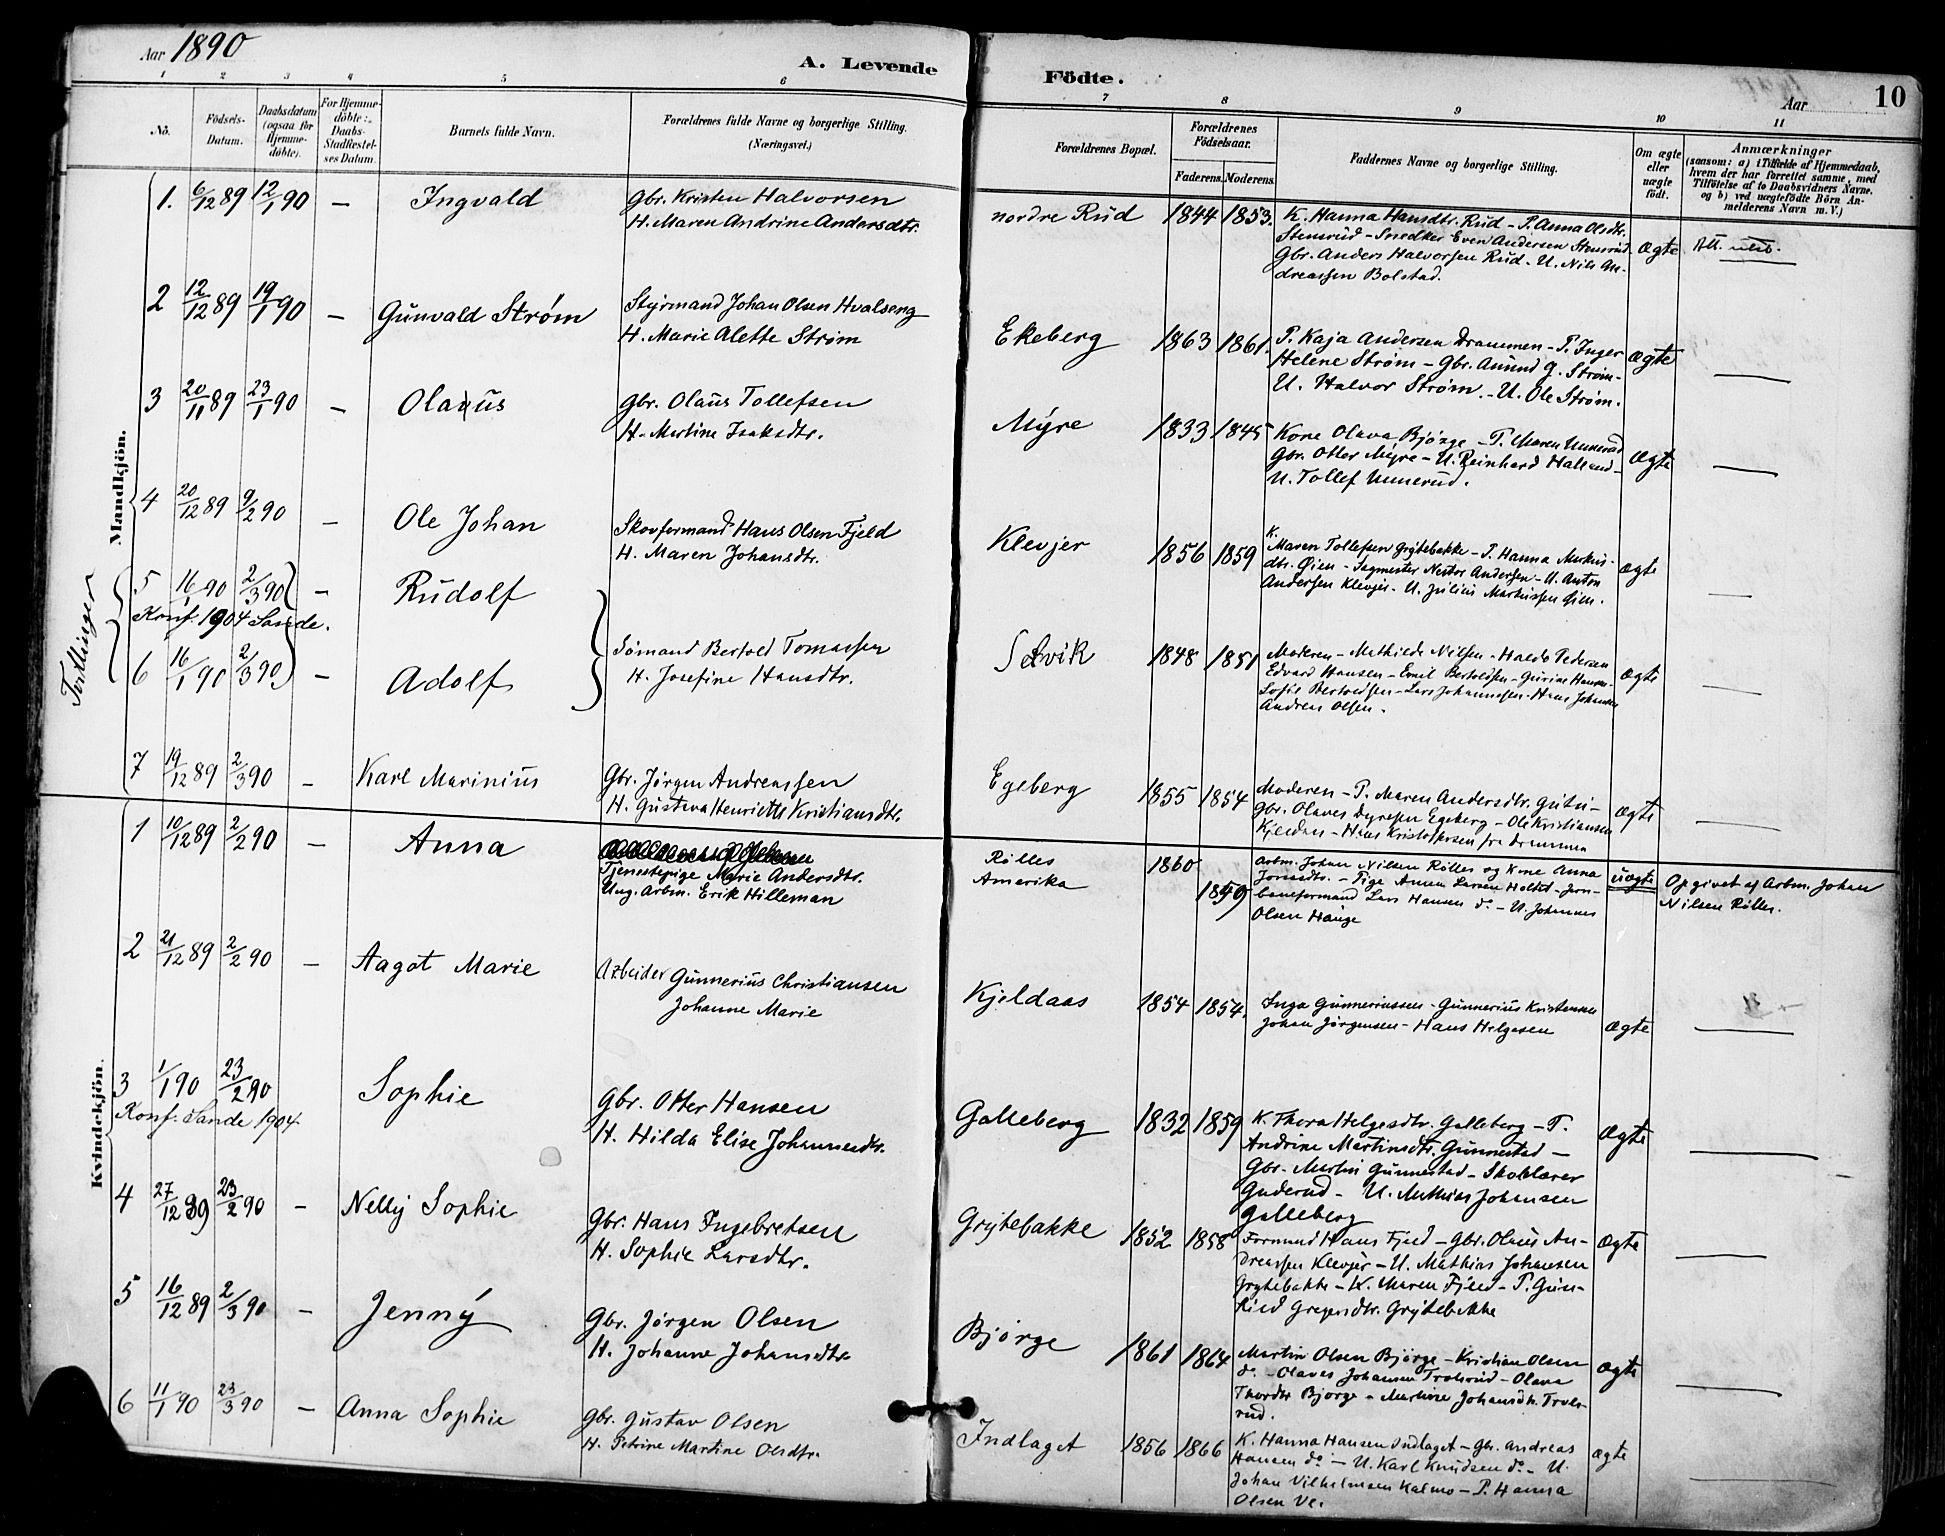 Aar 1890
A. Levende
Födte.
Aar
10
1 2 3 4 5 6 7 8 9 10 11
No.
Födsels-
Datum.
Daabsdatum
(ogsaa for
Hjemme-
döbte).
For Hjemme-
döbte:
Daabs-
Stadfestel-
ses Datum.
Barnets fulde Navn.
Forældrenes fulde Navne og borgerlige Stilling.
(Næringsvei.)
Forældrenes Bopæl.
Forældrenes
Födselsaar.
Faderens. Moderens.
Faddernes Navne og borgerlige Stilling.
Om ægte
eller
uægte
födt.
Anmærkninger
(saasom: a) i Tilfælde af Hjemmedaab,
hvem der har forrettet samme, med
Tilföielse af to Daabsvidners Navne,
og b) ved uægtefödte Börn An-
melderens Navn m. V.)
Mandkjön.
1. 6/12 89 12/1 90 — Ingvald
Gbr. Kristen Halvorsen
H. Maren Andrine Andersdtr.
nordre Rud 1844 1853.
K. Hanna Hansdtr. Rud - P. Anna Olsdtr.
Stensrud - Snedker Even Andersen Stensrud
Gbr. Anders Halvorsen Rud - U. Nils An-
dreassen Bolstad.
Ægte
2 12/12 89 19/1 90 — Gunvald Strøm
Styrmand Johan Olsen Hvalseng
H. Marie Alette Strøm
Ekeberg 1863 1861.
P. Kaja Andersen Drammen - P. Inger
Helene Strøm - Gbr. Amund G. Strøm -
U. Halvor Strøm. - U. Ole Strøm.
Ægte —
3 20/11 89 23/1 90 — Olaus
Gbr. Olaus Tollefsen
H. Martine Isaksdtr.
Myre 1833 1845
Kone Olava Bjørge - P. Maren Unnerud
Gbr. Otter Myre - U. Reinhard
U. Tollef Unnerud.
Ægte —
4 20/12 89 9/2 90 — Ole Johan
Skovformand Hans Olsen Fjeld
H. Maren Johansdtr.
Klevjer 1856 1859
K.
Maren Tollefsen Grytebakke - P. Hanna Markus-
dtr. Øien - Sagmester Nestor Andersen - U. Anton
Andersen Klevjer - U. Julius Markussen Øien.
Ægte —
Tvillinger
5 16/1 90 2/3 90 — Rudolf
Konf. 1904 Sande.
6 16/1 90 2/3 90 — Adolf
Sømand Bertold Tomassen
H. Josefine Hansdtr.
Selvik 1848 1851
Moderen - Mathilde Nilsen - Pedersen
Edvard Hansen - Emil Bertoldsen - Gurine Hansen -
Sofie Bertoldsen - Lars Johannessen - Hans Johansen
Andreas Olsen.
Ægte —
7 19/12 89 2/3 90 — Karl Marinius
Gbr. Jørgen Andreassen
H. Gustava Henriette Kristiansdtr.
Egeberg 1855 1854
Moderen - P. Maren Andersdtr.
Gbr. Olaves Egeberg - Ole Kristiansen
Kjeldaas - Hans Kristoffersen fra Drammen
Ægte —
Kvindekjön.
1 10/12 89 2/2 90 — Anna
Tjenestepige Marie Andersdtr.
Ung. Arbm. Erik Hilleman
Rølles 1860
Amerika 1859
Arbm. Johan Nilsen Rølles og Kone Anna
- Pige Anna Larsen Holtet - Jern-
baneformand Lars Hansen do - U. Johannes
Olsen Hauge
Uægte
Opgivet af Arbm. Johan
Nilsen Rølles.
2 21/12 89 2/2 90 — Aagot Marie
Arbeider Gunnerius Christiansen
Johanne Marie
Kjeldaas 1854 1854.
Inga Gunneriussen - Gunnerius Kristensen
Johan Jørgensen - Hans Helgesen
Ægte —
3 1/1 90 23/2 90 Sophie
Konf. Sande 1904.
Gbr. Otter Hansen
H. Hilda Elise Johannesdtr.
Galleberg 1832 1859
K. Thora Helgesdtr. Galleberg - P.
Andrine Martinsdtr. Gunnestad -
Gbr. Martin Gunnestad - Skolelærer
Guderud - U. Mathias Johansen
Galleberg
Ægte —
4 27/12 89 23/2 90 — Nelly Sophie
Gbr. Hans Ingebretsen
H. Sophie Larsdtr.
Grytebakke 1852 1858
Formand Hans Fjeld - Gbr. Olaus An-
dreassen Klevjer - U. Mathias Johansen
Grytebakke - K. Maren Fjeld - P. Gun-
hild Gregersdtr. Grytebakke
Ægte —
5 16/12 89 2/3 90 — Jenny
Gbr. Jørgen Olsen
H. Johanne Johansdtr.
Bjørge 1861 1864
Martin Olsen Bjørge - Kristian Olsen
do - Olaves Johansen Trolsrud - Olava
Thordtr Bjørge - Martine Johansdtr. Trols-
rud.
Ægte —
6 11/1 90 23/3 90 — Anna Sophie
Gbr. Gustav Olsen
H. Petrine Martine Olsdtr.
Indlaget 1856 1866
K. Hanna Hansen Indlaget - Gbr. Andreas
Hansen do - U. Karl Knudsen do - U.
Johan Vilhelmsen Kalmo - P. Hanna
Olsen
Ægte —